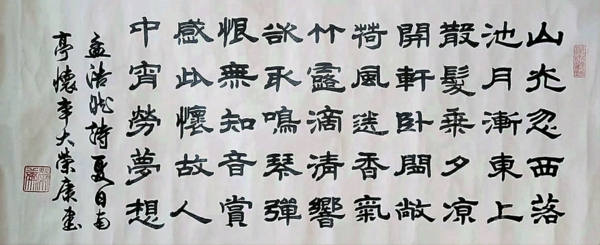 山光忽西落
池月漸東上
散髮乘夕凉
開軒臥閑敞
荷風送香氣
竹露滴清響
欲取鳴琴彈
恨無知音賞
感此懷故人
中宵勞夢想
孟浩然詩夏日南
亭懷辛大榮康書